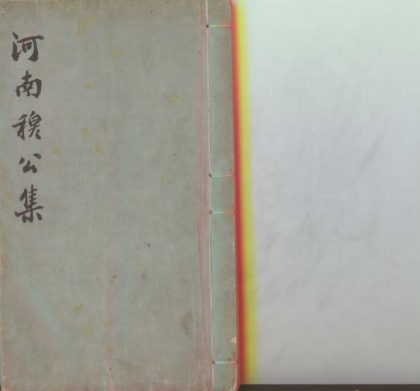 河南穆公集